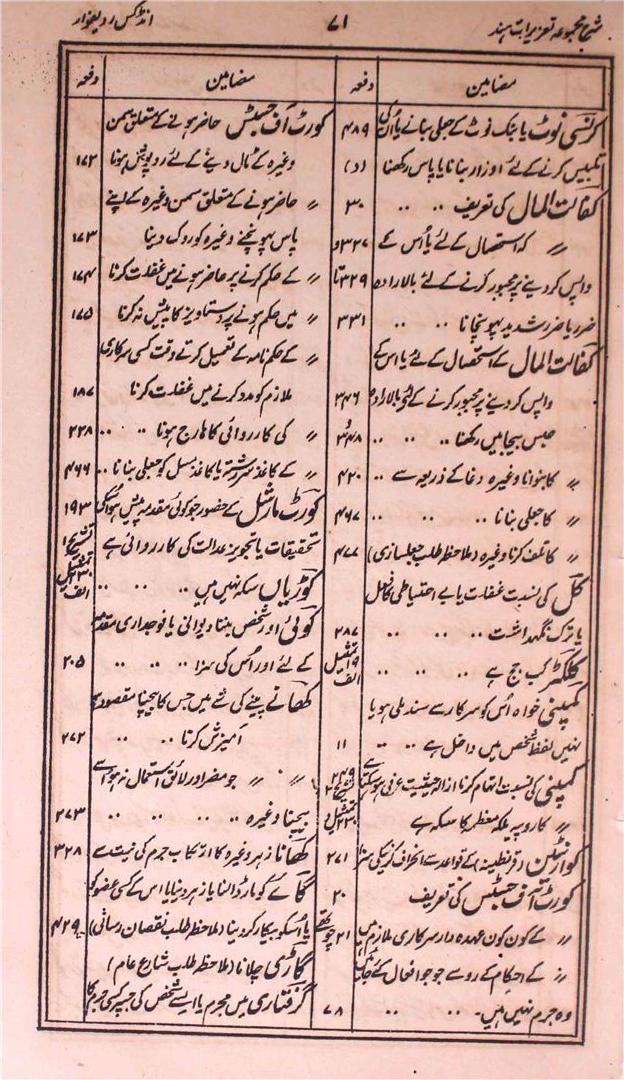 شرح مجموعہ تعزیرات ہند
۷۱
انڈکس ردیفوار
مضامین
دفعہ
کرنسی نوٹ یا بنک نوٹ کے جعلی بنانے یا اُن کی
۴۸۹
تلبیس کرنے کے لئے اوزار بنانا یا پاس رکھنا
(د)
کفالت المال کی تعریف ۔۔ ۔۔
۳۰
〃 کہ استحصال کے لئے یا اُس کے
۳۲۷و
واپس کر دینے پر مجبور کرنے کے لئے بالارادہ
۳۲۹تا
ضرر یا ضرر شدید پہونچانا ۔۔ ۔۔
۳۳۱
کفالت المال کے استحصال کے لئے یا اس کے
واپس کر دینے پر مجبور کرنے کے لئے بالارادہ
۳۴۶
حبس بیجا میں رکھنا ۔۔ ۔۔
و۳۴۸
〃 کا بنوانا وغیرہ دغا کے ذریعہ سے ۔۔
۴۲۰
〃 کا جعلی بنانا ۔۔ ۔۔ ۔۔
۴۶۷
〃 کا تلف کرنا وغیرہ (ملاحظہ طلب جعلسازی)
۴۷۷
کل کی نسبت غفلت یا بے احتیاطی کا فعل
یا ترک نگہداشت ۔۔ ۔۔ ۔۔
۲۸۷
کلکٹر کب جج ہے ۔۔ ۔۔
۱۹ تمثیل الف
کمپنی خواہ اُس کو سرکار سے سند ملی ہو یا
نہیں لفظ شخص میں داخل ہے ۔۔ ۔۔
۱۱
کمپنی کی نسبت اتہام کرنا ازالہ حیثیت عرفی ہو سکتا ہے
〃 کا روپیہ ملکہ معظمہ کا سکہ ہے
کوارنٹین (قرنطینہ) کے قواعد سے انحراف کرنیکی سزا
۲۷۱
کورٹ آف جسٹس کی تعریف
۲۰
〃 کے کون کون عہدہ دار سرکاری ملازم ہیں
۲۱
〃 کے احکام کے رو سے جو جو افعال کئے جائیں
وہ جرم نہیں ہیں۔ ۔۔ ۔۔
۷۸
مضامین
دفعہ
کورٹ آف جسٹس حاضر ہونے کے متعلق سمن
وغیرہ کے ٹال دینے کے لئے روپوش ہونا
۱۷۲
〃 حاضر ہونے کے متعلق سمن وغیرہ کے اپنے
پاس پہونچنے وغیرہ کو روک دینا
۱۷۳
〃 کے حکم کرنے پر حاضر ہونے میں غفلت کرنا
۱۷۴
〃 میں حکم ہونے پر دستاویز کا پیش نہ کرنا
۱۷۵
〃 کے حکمنامہ کے تعمیل کرتے وقت کسی سرکاری
ملازم کو مدد کرنے میں غفلت کرنا
۱۸۷
〃 کی کارروائی کا ہارج ہونا ۔۔ ۔۔
۲۲۸
〃 کے کاغذ سررشتہ یا کاغذ مسل کو جعلی بنانا ۔۔
۴۶۶
کورٹ مارشل کے حضور جو کوئی مقدمہ پیش ہو اسکی
۱۹۳
تحقیقات یا تجویز عدالت کی کارروائی ہے
تشریح ۱
کوڑیاں سکہ نہیں ہیں ۔۔ ۔۔
تمثیل ۲۳۰ الف
کوئی اور شخص بننا دیوانی یا فوجداری مقدمہ
کے لئے اور اُس کی سزا ۔۔ ۔۔
۲۰۵
کھانے پینے کی شے میں جس کا بیچنا مقصود ہو
آمیزش کرنا ۔۔ ۔۔
۲۷۲
〃 〃 جو مضر اور لائق استعمال نہ ہو اسے
بیچنا وغیرہ ۔۔ ۔۔ ۔۔
۲۷۳
کھانا زہر وغیرہ کا ارتکاب جرم کی نیت سے
۳۲۸
گائے کو مار ڈالنا یا زہر دینا یا اس کے کسی عضو کو
یا اُسکو بیکار کر دینا (ملاحظہ طلب نقصان رسانی)
۴۲۹
گاڑی چلانا (ملاحظہ طلب شارع عام)
گرفتاری میں مجرم یا ایسے شخص کی جسپر کسی جرم کا